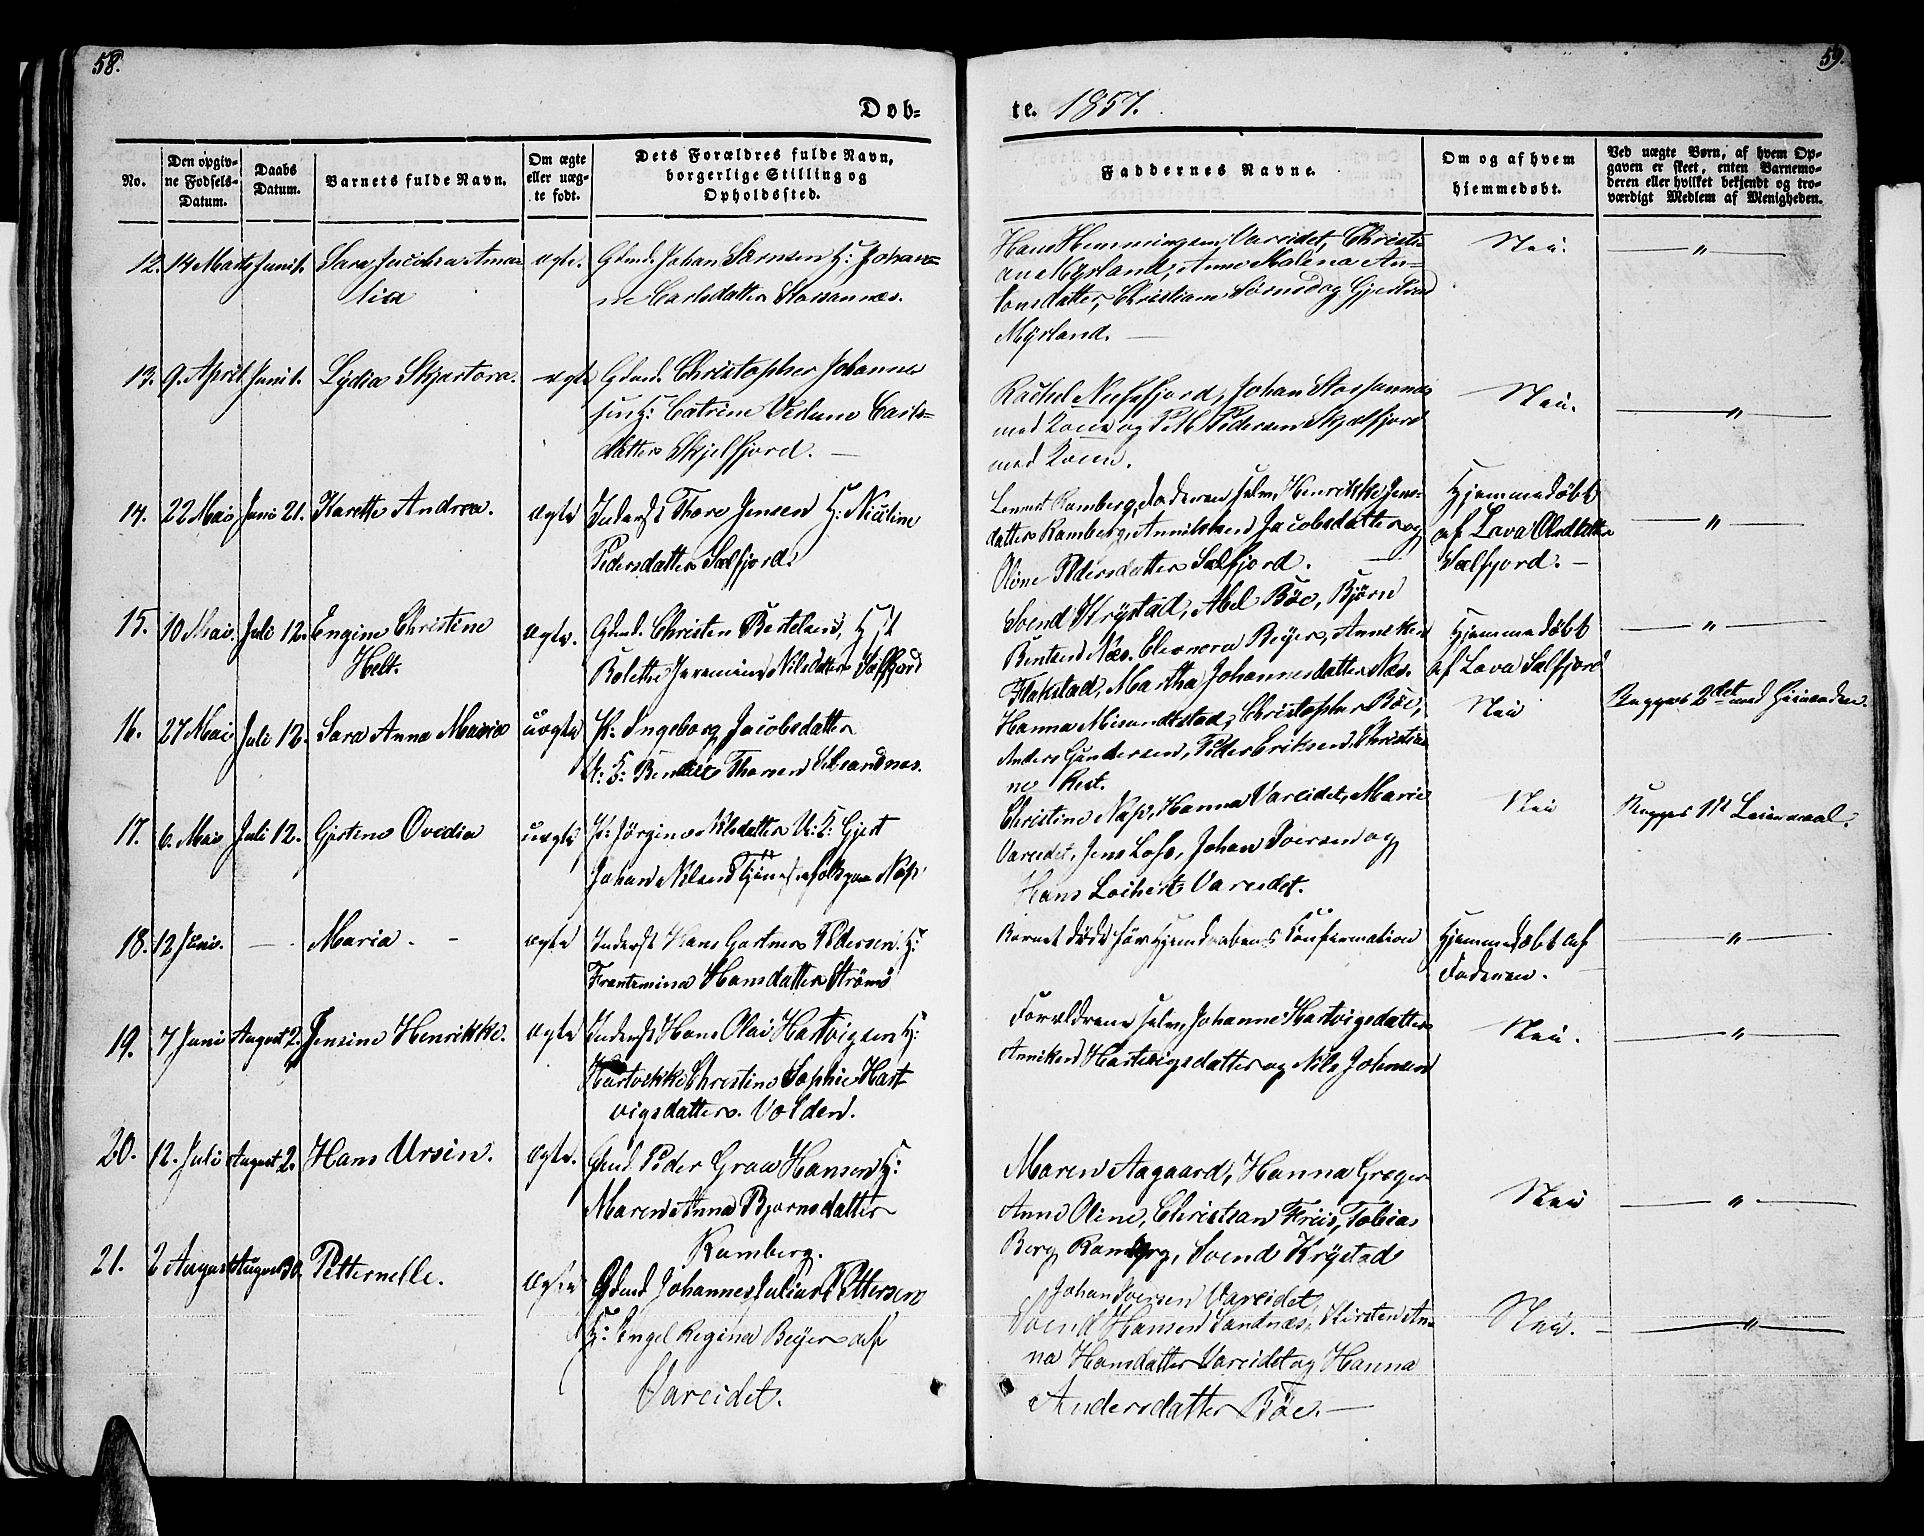 58.
59.
Døb-
te. 1857.
No.
Den opgiv-
ne Fødsels-
Datum.
Daabs
Datum.
Barnets fulde Navn.
Om ægte
eller uæg-
te født.
Dets Forældres fulde Navn,
borgerlige Stilling og
Opholdssted.
Faddernes Navne.
Om og af hvem
hjemmedøbt.
Ved uægte Børn, af hvem Op-
gaven er skeet, enten Barnemo-
deren eller hvilket bekjendt og tro-
værdigt Medlem af Menigheden.
12. 14 Marts Juni 1. Sara Amа-
lia
ægte. Gdmd. Johan Sørnsen H: Johan-
ne Carlsdatter
Hans Henningsen Vareidet, Christi-
ane Myrland, Anne Malena An-
tonsdatter, Christian og Gjertrud
Myrland. —
Nei.
— " —
13. 9. April Juni 1. Lydia
ægte Gdmd. Christopher Johanne
sen H: Catrine Carls-
datter Skjelfjord. —
Rachel Johan
med Kone og Pedersen Skjelfjord
med Konen.
Nei.
— " —
14. 22 Mai Juni 21. Karette Andrea.
ægte Inderst Thore Jensen H: Nicoline
Pedersdatter Sælfjord.
Ramberg, Faderen selv, Henrikke Jens-
datter Ramberg, Jacobsdatter og
Oline Pedersdatter Sælfjord. —
Hjemmedøbt
af Lava Olsdatter
Sælfjord. —
— " —
15. 10 Mai. Juli 12. Engine Christine
Helt.
ægte. Gdmd. Christen Bertelsen,
Bolette Nilsdatter Sælfjord
Svend Krystad, Abel Böe, Björn
Bentsen Næs. Eleonora Beÿer, Anneken
Flakstad, Martha Johannesdatter Næs.
Hjemmedøbt
af Lava Sælfjord
— " —
16. 27 Mai Juli 12. Sara Anna Maria
uægte P: Ingeborg Jacobsdatter
U: K:
Hanna Christopher Böe,
Anders Gundersen, Peder Eriksen, Christia-
ne
Nei
Begges 2det
17. 6. Mai Juli 12. Ovedia
uægte P: Jörgine Nilsdatter U: K: Gjert
Johan Nilsen
Christine Hanna Vareidet, Marie
Vareidet, Jens Johan Iversen og
Hans Vareidet.
Nei
Begges 1st Leiermaal.
18. 12 Juni. — Maria. -
ægte Inderst Hans Gartner Pedersen. H:
Hansdatter Strömö
Barnet döde för Hjemdaabens Confirmation
Hjemmedøbt af
Faderen.
— " —
19. 7 Juni August 2. Jensine Henrikke.
ægte Inderst Hans Olai Hartvigsen H:
Christine Sophie Hart-
vigsdatter. Volden.
Forældrene selv, Johanne Hartvigsdatter
Anniken Hartvigsdatter og Nils Johnsen
Nei.
— " —
20. 12. Juli August 2. Hans Ursin.
ægte. Gmd. Peder Hansen H:
Maren Anna Bjornsdatter
Ramberg.
Maren Aagaard, Hanna Greger
Anne Oline, Christian Friis, Tobias
Berg Ramberg, Svend Krystad
Nei
— " —
21. 2 August August 30. Petternelle.
ægte Gdmd Johannes Julius Pettersen
H: Engel Regina Beÿer af
Vareidet.
Johan Iversen Vareidet,
Svend Hansen Sandnæs, Kirsten An-
na Hansdatter Vareidet og Hanna
Andersdatter Böe. —
Nei. —
— " —